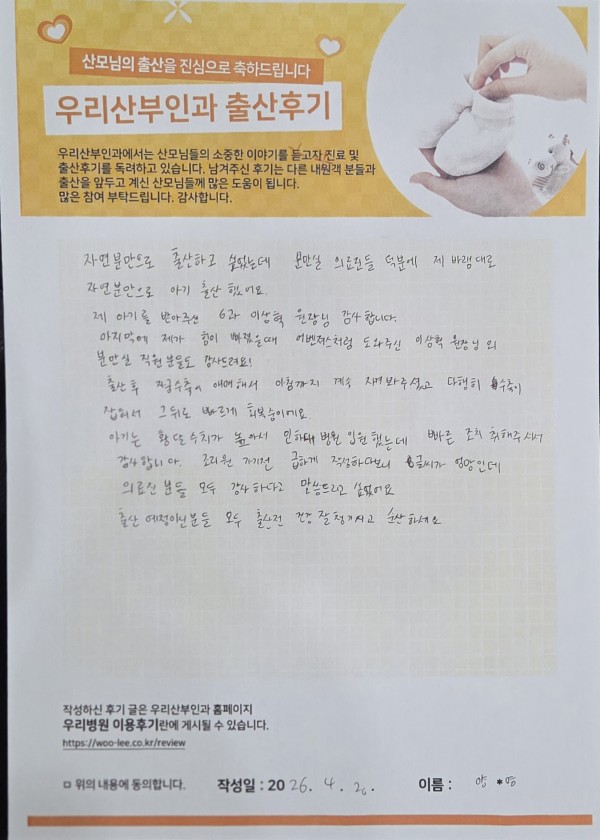 산모님의 출산을 진심으로 축하드립니다
우리산부인과 출산후기
우리산부인과에서는 산모님들의 소중한 이야기를 듣고자 진료 및
출산후기를 독려하고 있습니다. 남겨주신 후기는 다른 내원객 분들과
출산을 앞두고 계신 산모님들께 많은 도움이 됩니다.
많은 참여 부탁드립니다. 감사합니다.
자연분만으로 출산하고 싶었는데 분만실 의료진들 덕분에 제 바램대로
자연분만으로 아기 출산 했어요.
제 아기를 받아주신 6과 이상혁 원장님 감사합니다.
마지막에 제가 힘이 빠졌을때 어벤져스처럼 도와주신 이상혁 원장님 외
분만실 직원분들도 감사드려요!
출산 후 자궁수축이 애매해서 아침까지 계속 지켜봐주셨고 다행히 수축이
잡혀서 그뒤로 빠르게 회복중이에요.
아기는 황달수치가 높아서 인하대병원 입원 했는데 빠른 조치 취해주셔서
감사합니다. 조리원 가기전 급하게 작성하다보니 글씨가 엉망인데
의료진 분들 모두 감사하다고 말씀드리고 싶었어요
출산 예정이신분들 모두 출산전 건강 잘 챙기시고 순산하세요
작성하신 후기 글은 우리산부인과 홈페이지
우리병원 이용후기란에 게시될 수 있습니다.
https://woo-lee.co.kr/review
□ 위의 내용에 동의합니다. 작성일 : 2026. 4. 20. 이름 : 양*영